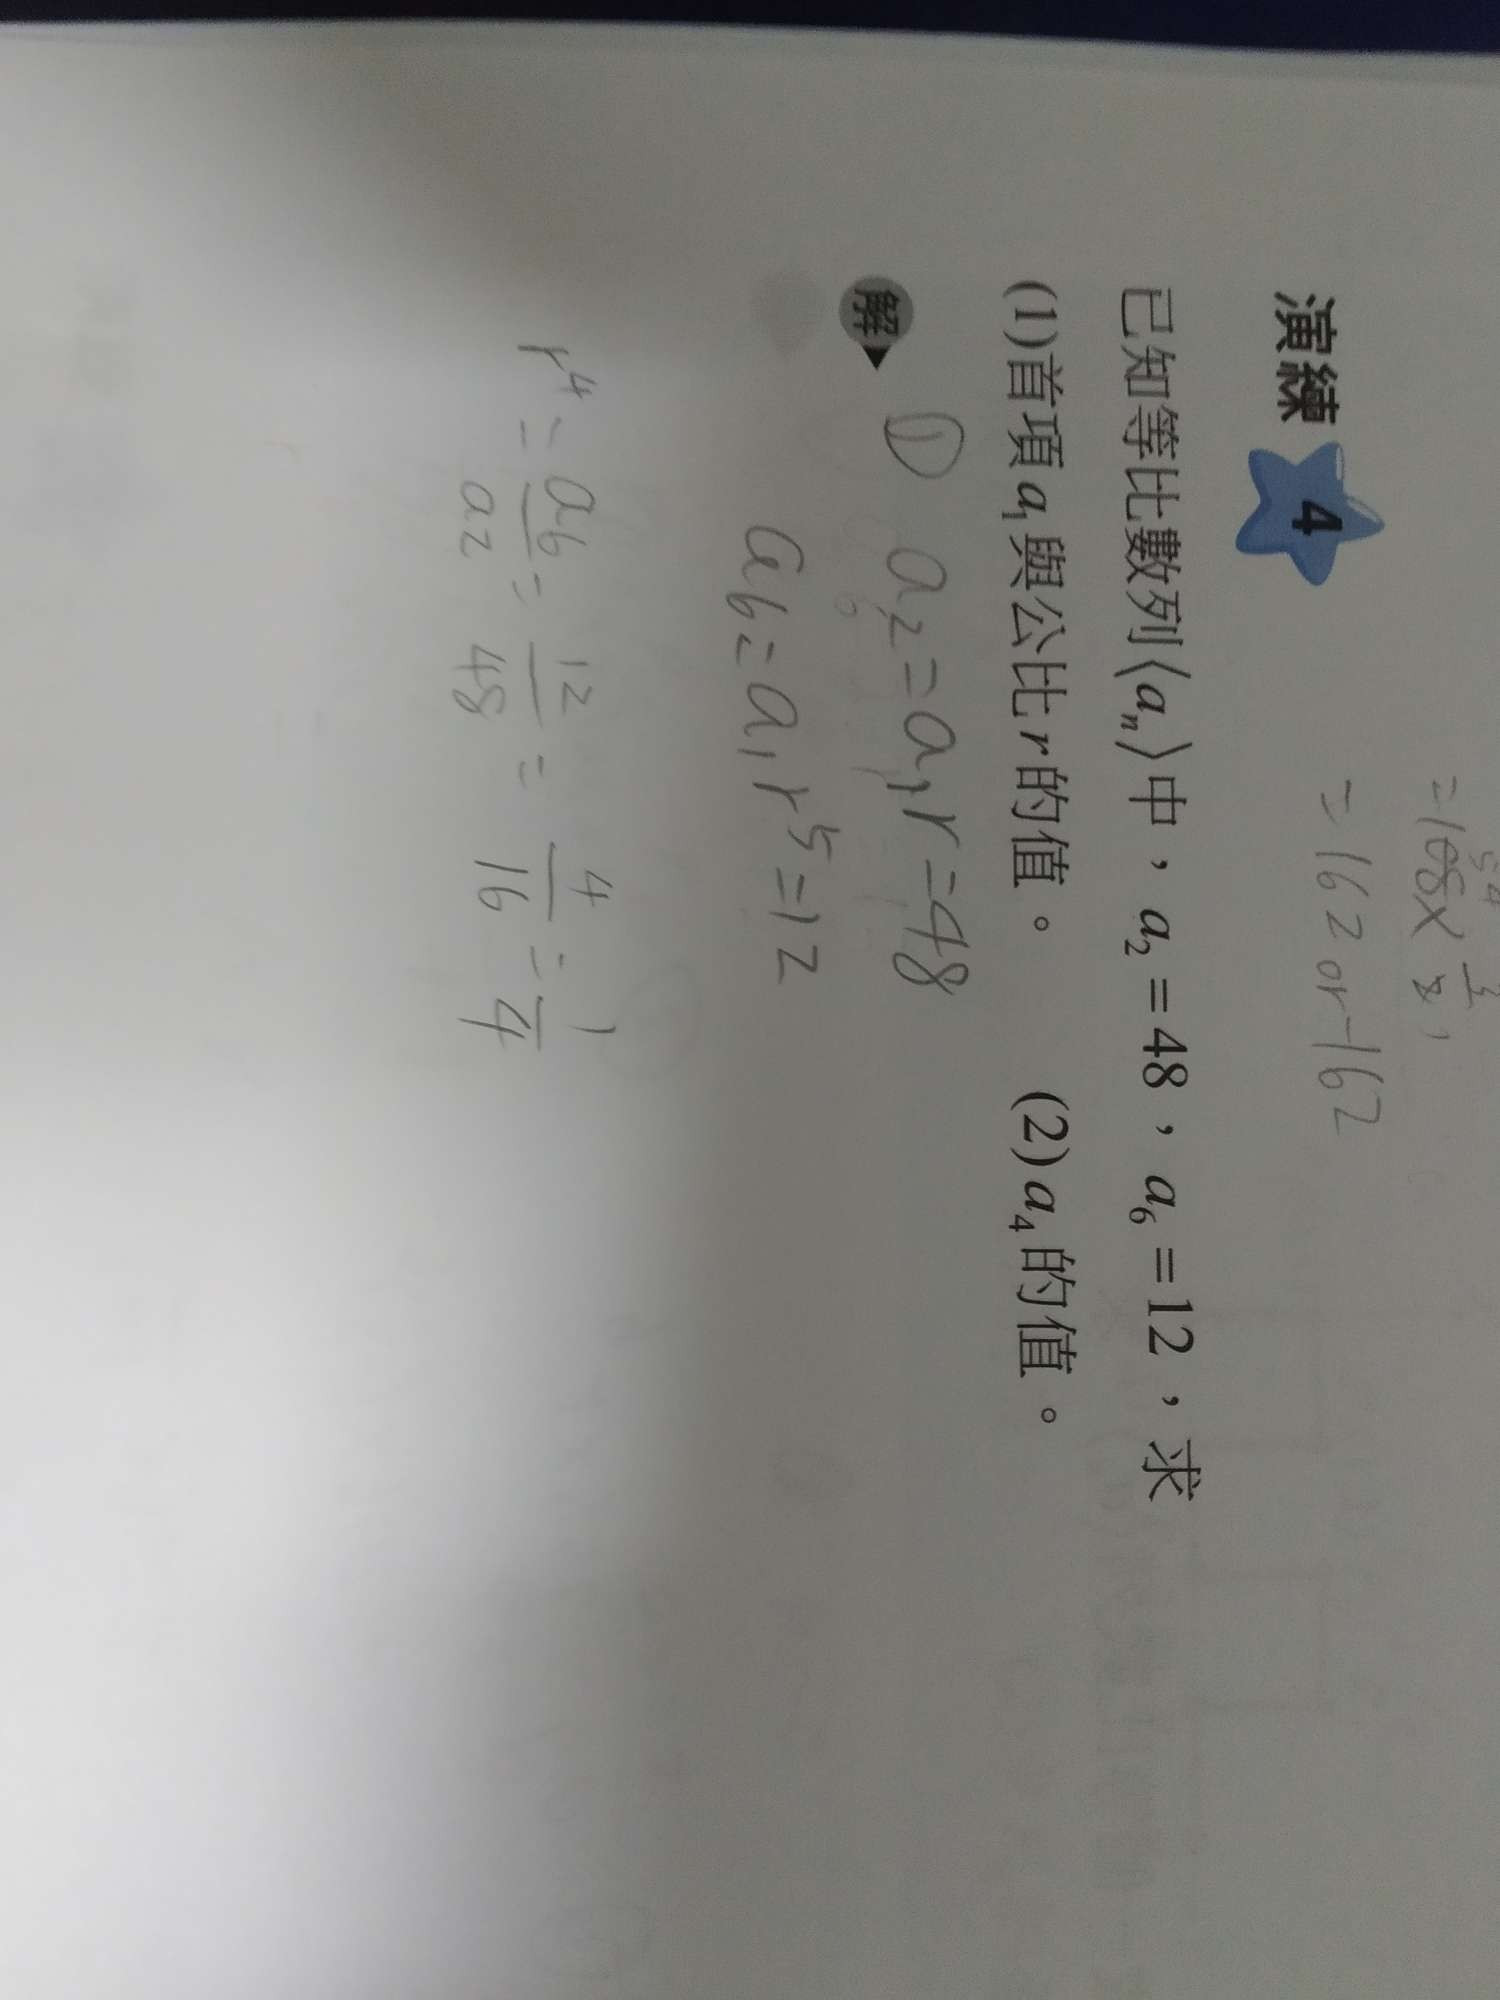 =108×
=162 or -162
演練 4
已知等比數列⟨aₙ⟩中，a₂=48，a₆=12，求
(1)首項a₁與公比r的值。 (2)a₄的值。
解 ① a₂=a₁r=48
a₆=a₁r⁵=12
r⁴=a₆/a₂=12/48=4/16=1/4